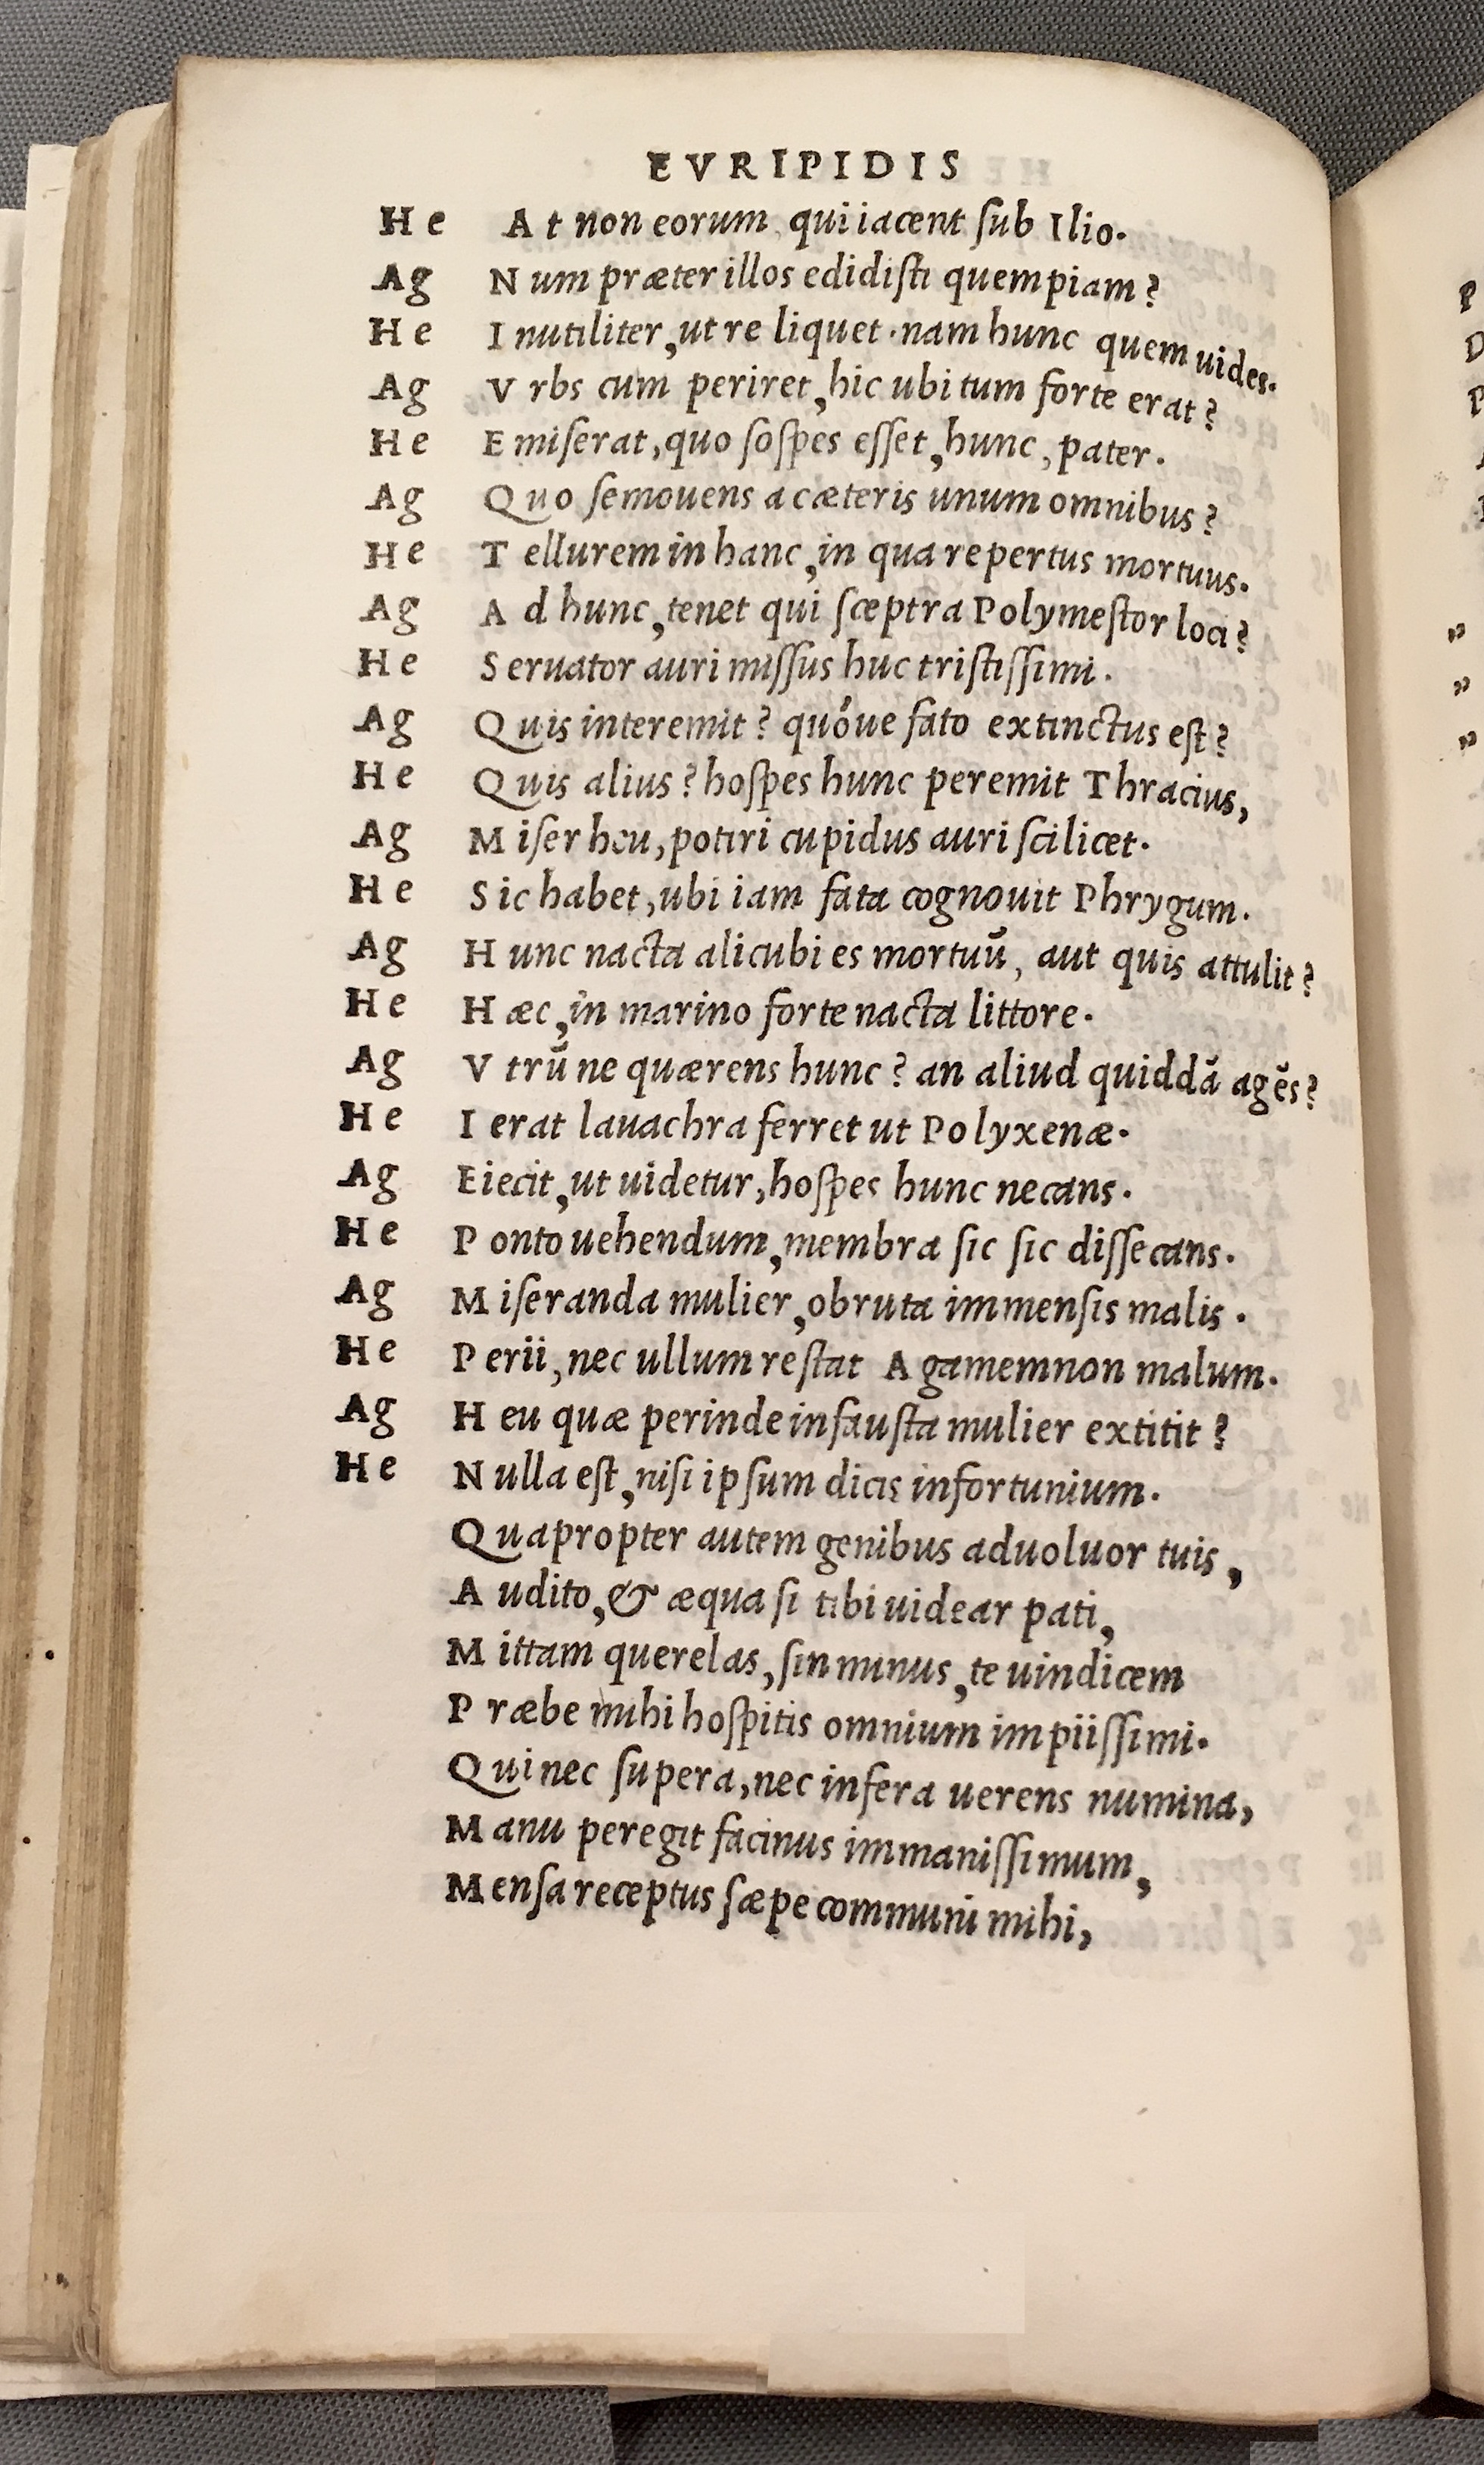 EVRIPIDIS
He At non eorum, qui iacent sub Ilio.
Ag Num præter illos edidisti quempiam?
He Inutiliter, ut re liquet. nam hunc quem uides.
Ag Vrbs cum periret, hic ubi tum forte erat?
He Emiserat, quo sospes esset, hunc, pater.
Ag Quo semouens a cæteris unum omnibus?
He Tellurem in hanc, in qua repertus mortuus.
Ag Ad hunc, tenet qui scæptra Polymestor loci?
He Seruator auri missus huc tristissimi.
Ag Quis interemit? quóue fato extinctus est?
He Quis alius? hospes hunc peremit Thracius,
Ag Miser heu, potiri cupidus auri scilicet.
He Sic habet, ubi iam fata cognouit Phrygum.
Ag Hunc nacta alicubi es mortuū, aut quis attulit?
He Hæc, in marino forte nacta littore.
Ag Vtrū ne quærens hunc? an aliud quiddā agēs?
He Ierat lauachra ferret ut Polyxenæ.
Ag Eiecit, ut uidetur, hospes hunc necans.
He Ponto uehendum, membra sic sic dissecans.
Ag Miseranda mulier, obruta immensis malis.
He Perii, nec ullum restat Agamemnon malum.
Ag Heu quæ perinde infausta mulier extitit?
He Nulla est, nisi ipsum dicis infortunium.
Quapropter autem genibus aduoluor tuis,
Audito, & æqua si tibi uidear pati,
Mittam querelas, sin minus, te uindicem
Præbe mihi hospitis omnium impiissimi.
Qui nec supera, nec infera uerens numina,
Manu peregit facinus immanissimum,
Mensa receptus sæpe communi mihi,